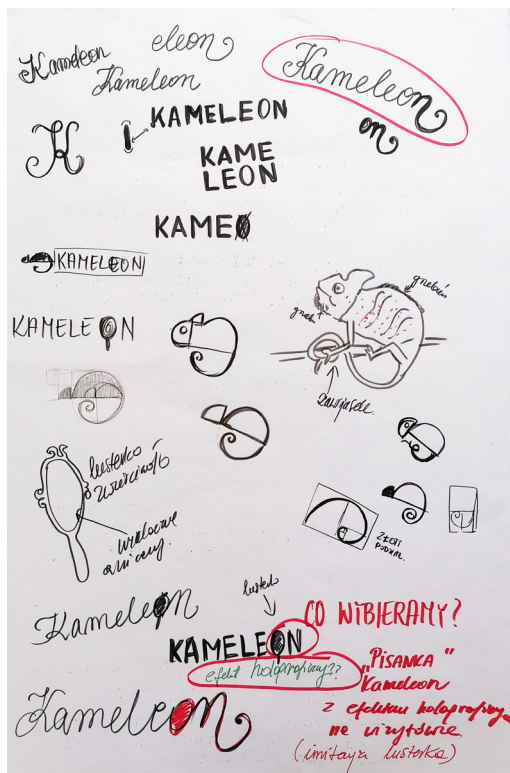 Kameleon
eleon
Kameleon
Kameleon
on
K
KAMELEON
KAME
LEON
KAMEO
KAMELEON
KAMELEON
grzebień
zawijasek
lusterko
ZŁOTY
PODZIAŁ.
Kameleon
lusterko
KAMELEON
efekt holograficzny??
CO WIBIERAMY?
"PISANKA"
Kameleon
z efektem holograficznym
na wizytówce
(imitacja lusterka)
Kameleon